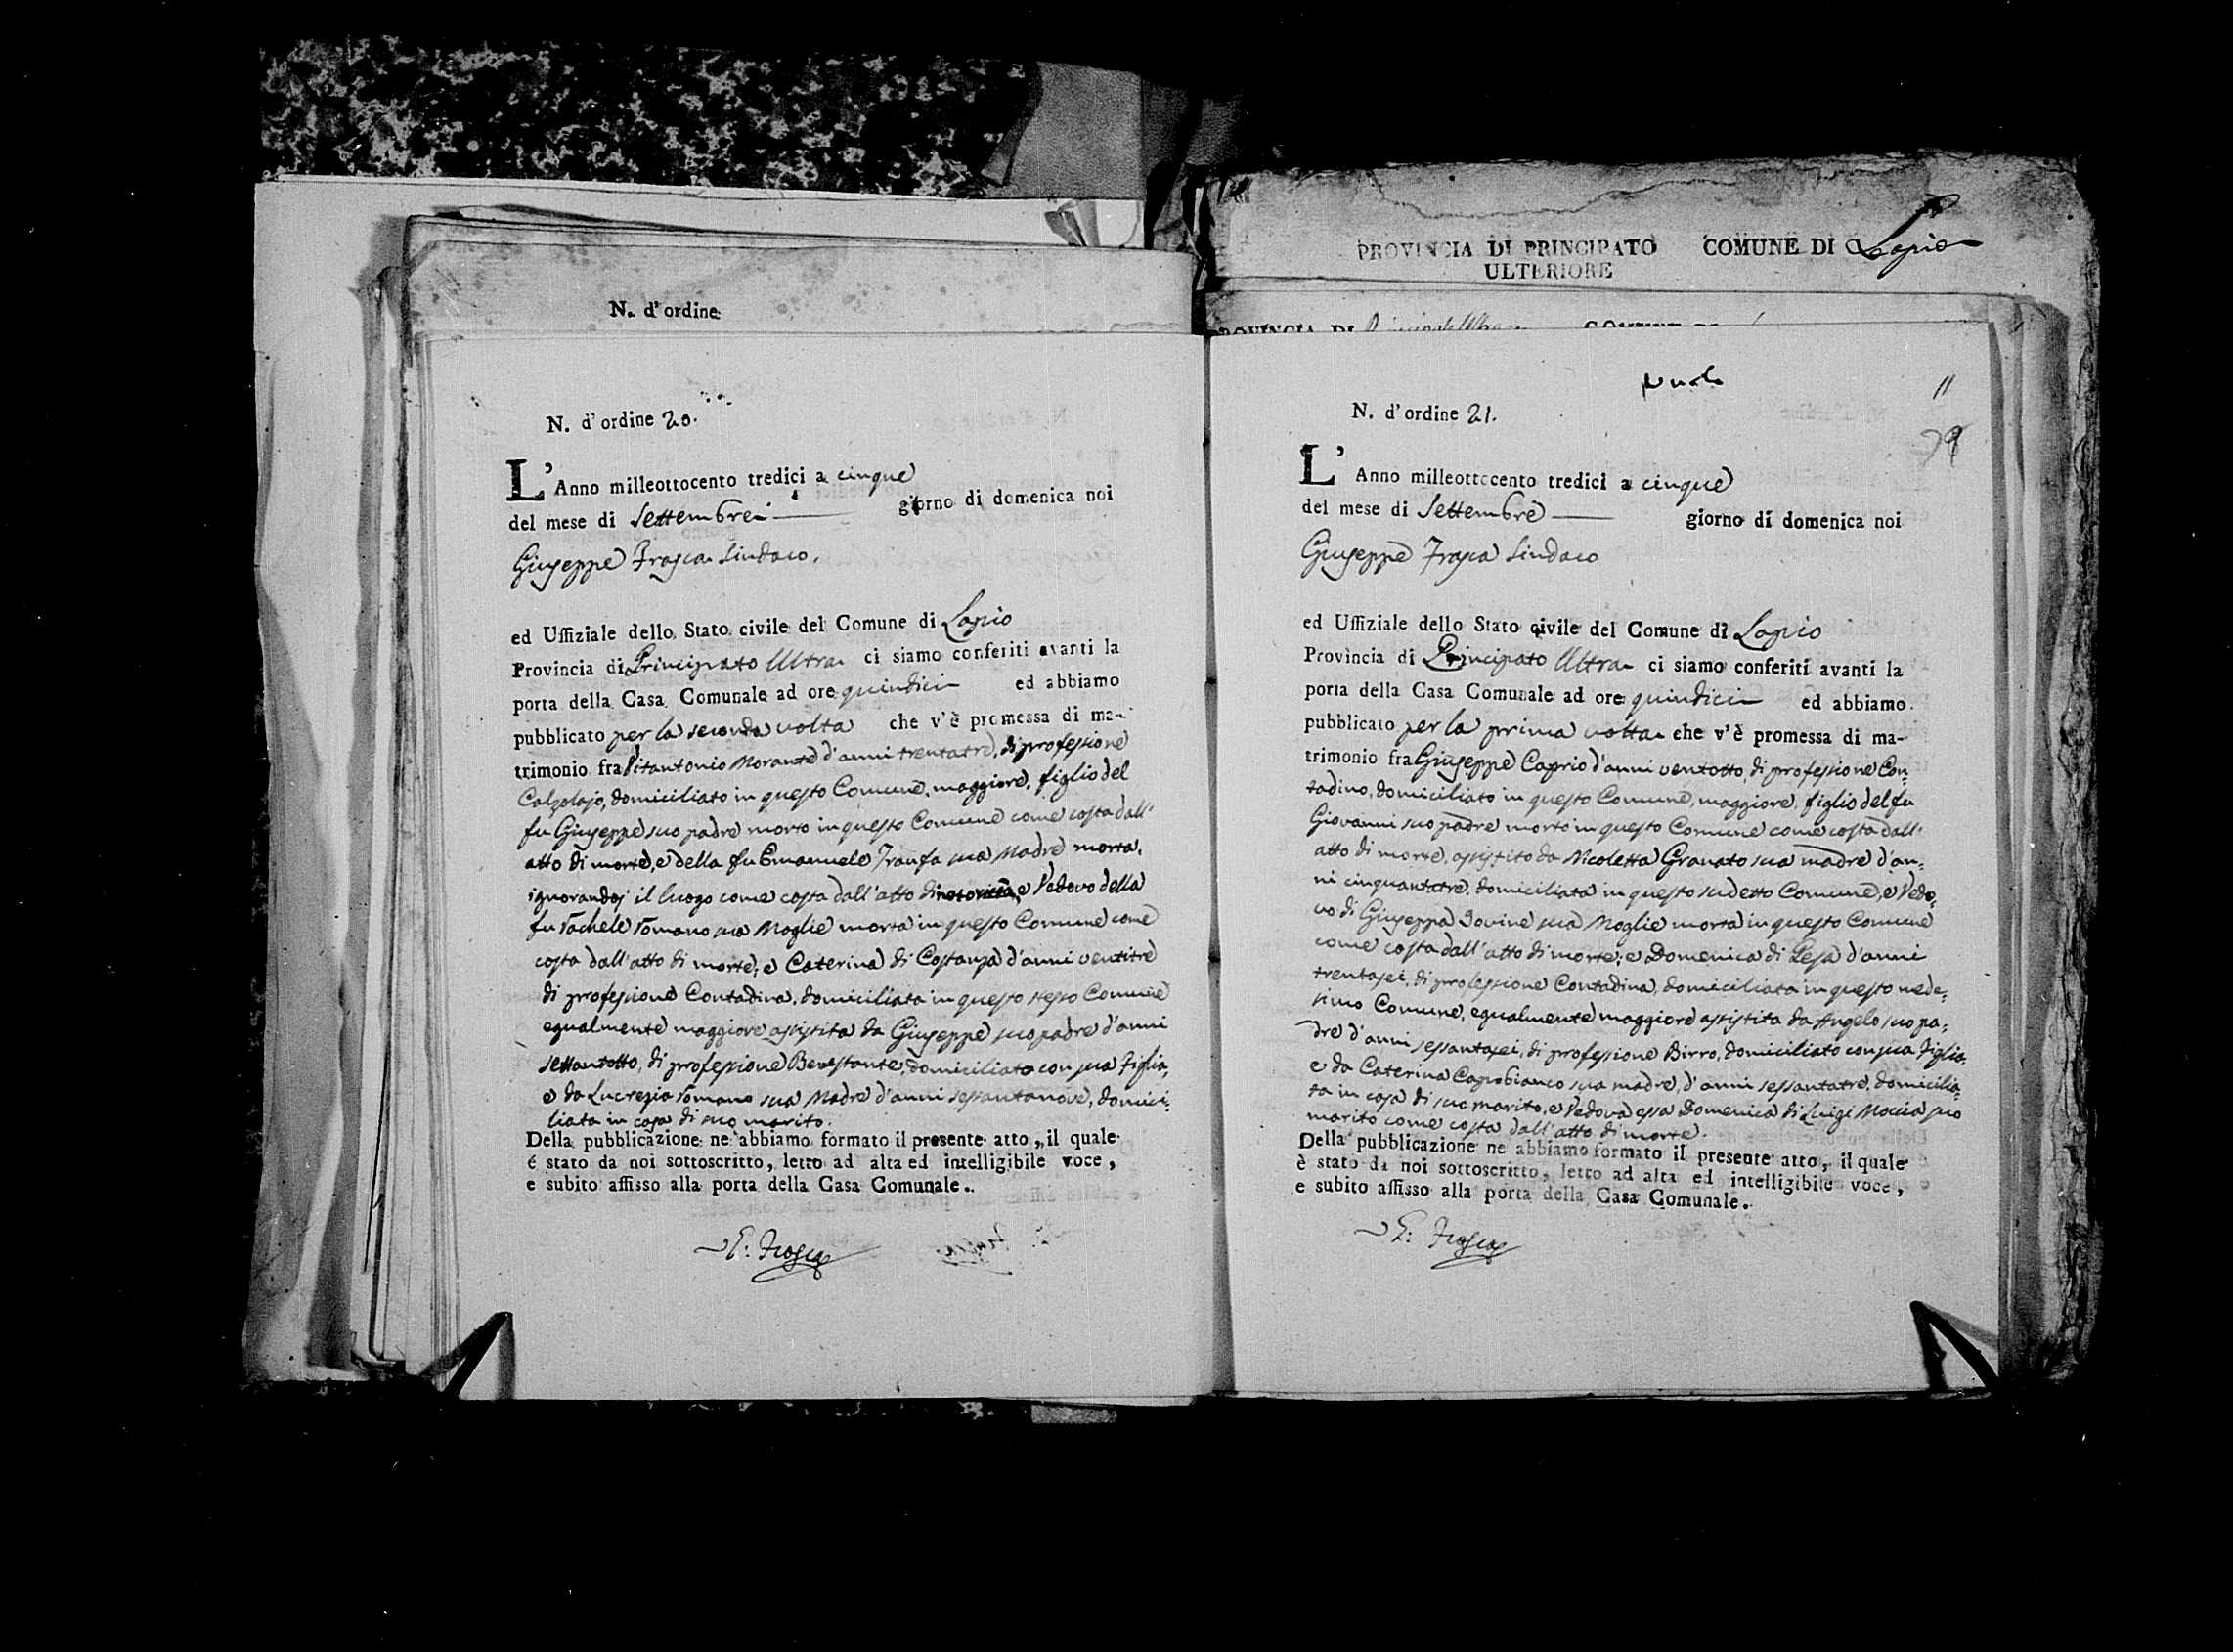 N. d'ordine
N. d'ordine 20.
L'Anno milleottocento tredici a cinque
del mese di Settembre giorno di domenica noi
Giuseppe Frasca Sindaco.
ed Uffiziale dello Stato civile del Comune di Lapio
Provincia di Principato Ultra ci siamo conferiti avanti la
porta della Casa Comunale ad ore quindici ed abbiamo
pubblicato per la seconda volta che v'è promessa di ma-
trimonio fra Vitantonio Morante d'anni trentatre, di professione
Calzolajo, domiciliato in questo Comune, maggiore, figlio del
fu Giuseppe suo padre morto in questo Comune come costa dall'
atto di morte, e della fu Emanuele Tranfa sua Madre morta,
ignorandosi il luogo come costa dall'atto di notorietà, e Vedovo della
fu Rachele Romano sua Moglie morta in questo Comune come
costa dall'atto di morte; e Caterina di Costanza d'anni ventitre
di professione Contadina, domiciliata in questo stesso Comune
egualmente maggiore assistita da Giuseppe suo padre d'anni
settantotto, di professione Benestante, domiciliato con sua Figlia,
e da Lucrezia Romano sua Madre d'anni sessantanove, domici-
liata in casa di suo marito.
Della pubblicazione ne abbiamo formato il presente atto, il quale
é stato da noi sottoscritto, letto ad alta ed intelligibile voce,
e subito affisso alla porta della Casa Comunale.
G: Frasca
PROVINCIA DI PRINCIPATO COMUNE DI Lapio
ULTERIORE
PROVINCIA DI
11
N. d'ordine 21.
L'Anno milleottocento tredici a cinque
del mese di Settembre giorno di domenica noi
Giuseppe Frasca Sindaco
ed Uffiziale dello Stato civile del Comune di Lapio
Provincia di Principato Ultra ci siamo conferiti avanti la
porta della Casa Comunale ad ore quindici ed abbiamo
pubblicato per la prima volta che v'è promessa di ma-
trimonio fra Giuseppe Caprio d'anni ventotto, di professione Con-
tadino, domiciliato in questo Comune, maggiore, figlio del fu
Giovanni suo padre morto in questo Comune come costa dall'
atto di morte, assistito da Nicoletta Granato sua madre d'an-
ni cinquantatre, domiciliata in questo sudetto Comune, e Vedo-
vo di Giuseppa Iovine sua Moglie morta in questo Comune
come costa dall'atto di morte; e Domenica di Pesa d'anni
trentasei, di professione Contadina, domiciliata in questo mede-
simo Comune, egualmente maggiore assistita da Angelo suo pa-
dre d'anni sessantasei, di professione Birro, domiciliato con sua Figlia,
e da Caterina Capobianco sua madre, d'anni sessantatre, domicilia-
ta in casa di suo marito, e Vedova essa Domenica di Luigi Moccia suo
marito come costa dall'atto di morte.
Della pubblicazione ne abbiamo formato il presente atto, il quale
è stato da noi sottoscritto, letto ad alta ed intelligibile voce,
e subito affisso alla porta della Casa Comunale.
G: Frasca